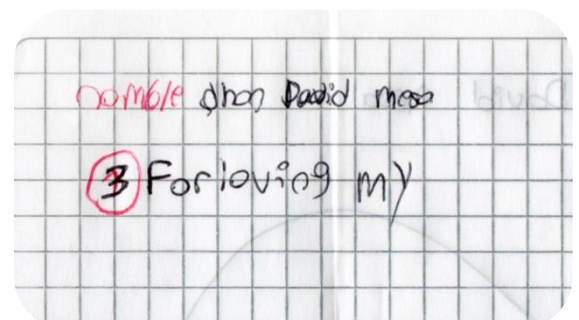 nomble Jhon David mesa
3 For loving my